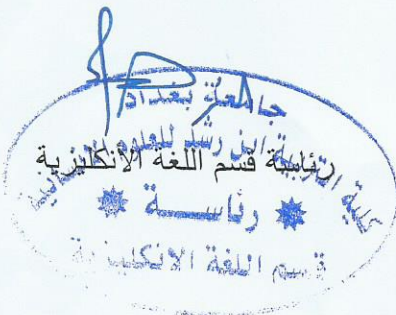 جامعة بغداد
كلية التربية ابن رشد للعلوم الانسانية
رئاسة قسم اللغة الانكليزية
رئاسة
قسم اللغة الانكليزية